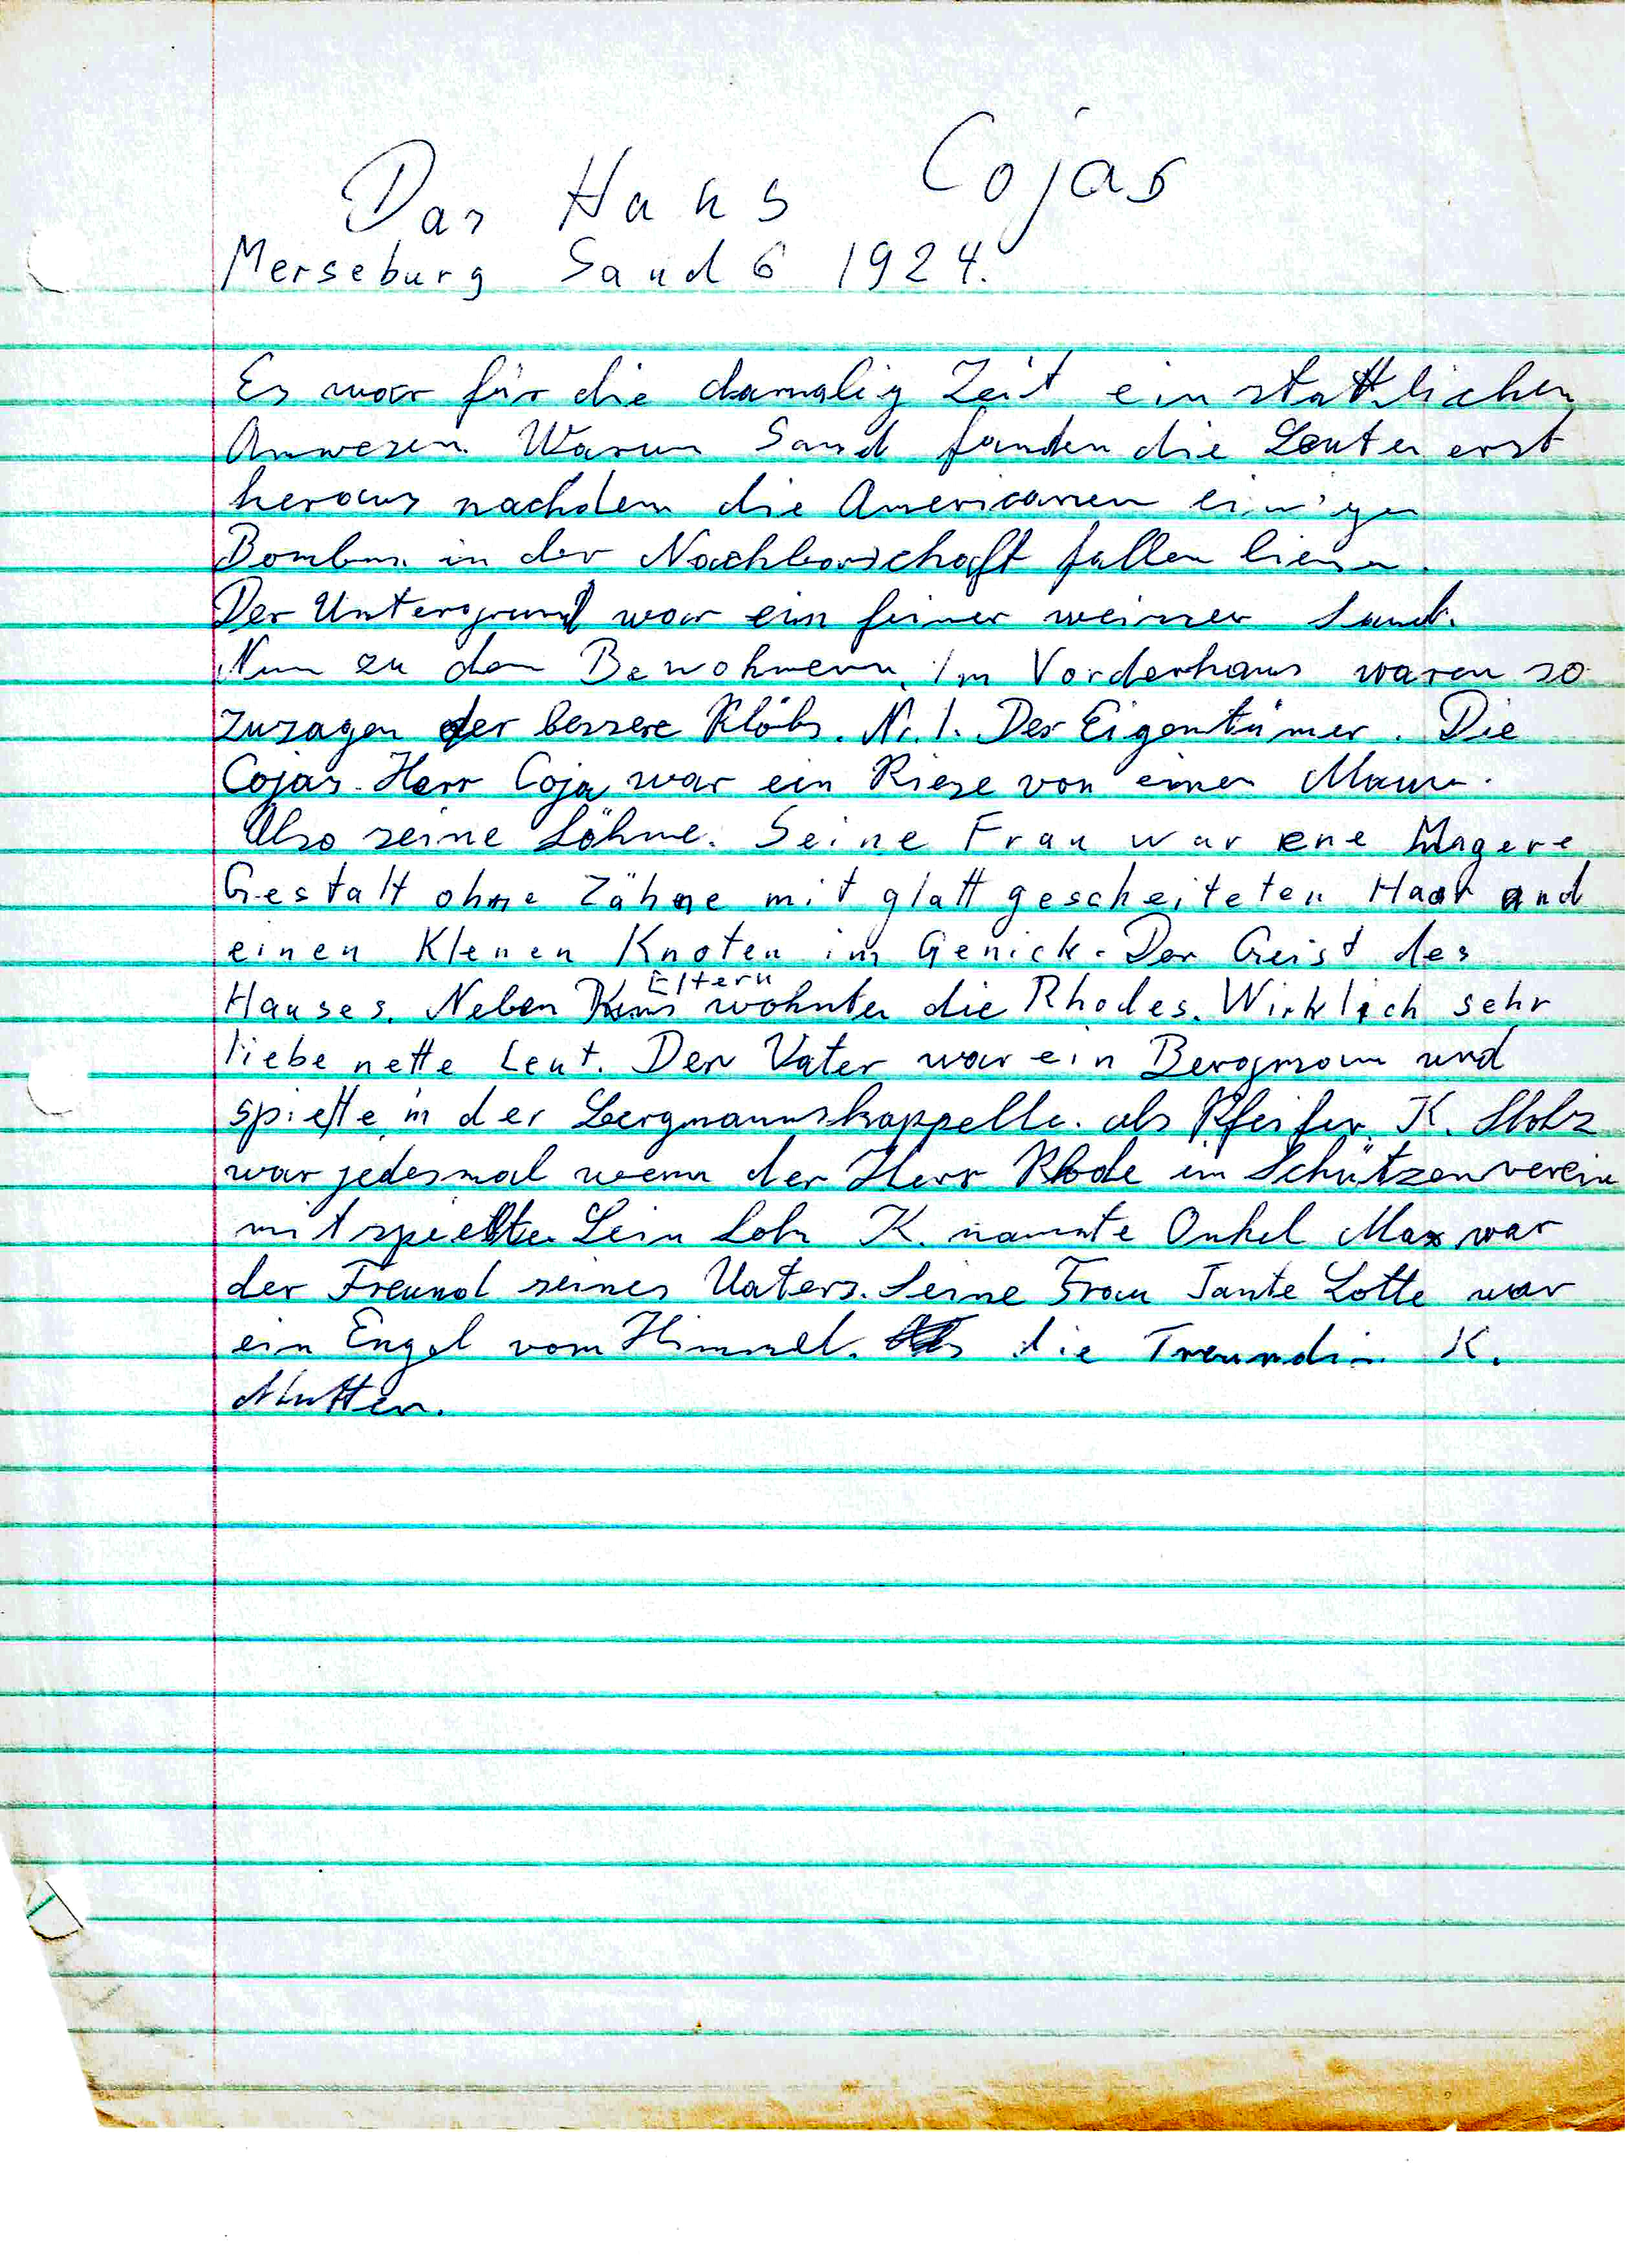 Das Haus Cojas
Merseburg Sand 6 1924.
Es war für die damalig Zeit ein stattlichen
Anwesen. Warum Sand fanden die Leuten erst
heraus nachdem die Americanen einigen
Bomben in der Nachbarschaft fallen liesen.
Der Untergrund war ein feiner weisser Sand.
Nun zu den Bewohnern. Im Vorderhaus waren so
zusagen der bessere Klöbs. Nr. 1. Der Eigentümer. Die
Cojas. Herr Coja war ein Riese von einen Mann.
Also seine Söhne. Seine Frau war ene Magere
Gestalt ohne Zähne mit glatt gescheiteten Haar und
einen Klenen Knoten im Genick. Der Geist des
Hauses. Neben Eltern wohnten die Rhodes. Wirklich sehr
liebe nette Leut. Der Vater war ein Bergmann und
spielte in der Bergmannskappelle. als Pfeifer. K. Stolz
war jedesmal wenn der Herr Rhode im Schützenverein
mit spielte. Sein Sohn K. nannte Onkel Max war
der Freund seines Vaters. Seine Frau Tante Lotte war
ein Engel vom Himmel. die Freundin K.
Mutter.